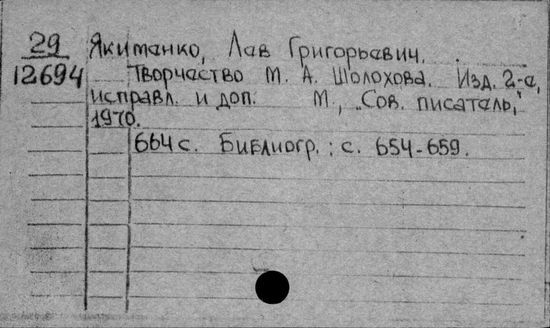 29 Якиманко, Лав Григорьавич.
12694 Творчаство М. А. Шолохова. Изд. 2-а,
исправл. и доп. М., „Сов. писатель,"
1970.
664 с. Библиогр.: с. 654-659.